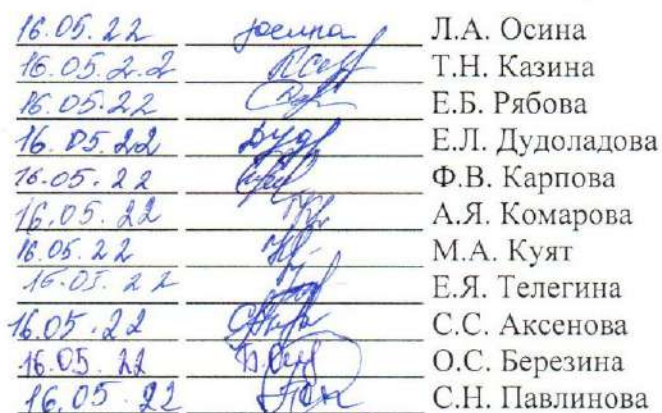 16.05.22 Л.А. Осина
16.05.22 Т.Н. Казина
16.05.22 Е.Б. Рябова
16.05.22 Е.Л. Дудоладова
16.05.22 Ф.В. Карпова
16.05.22 А.Я. Комарова
16.05.22 М.А. Куят
16.05.22 Е.Я. Телегина
16.05.22 С.С. Аксенова
16.05.22 О.С. Березина
16.05.22 С.Н. Павлинова